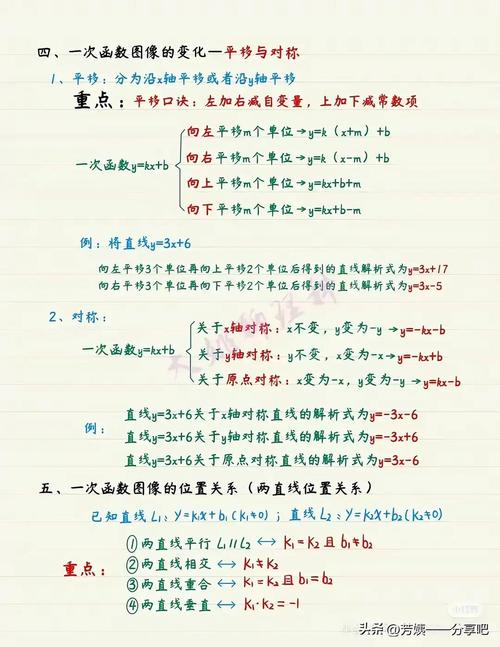 四、一次函数图像的变化—平移与对称
1、平移：分为沿x轴平移或者沿y轴平移
重点：平移口诀：左加右减自变量，上加下减常数项
向左平移m个单位→y=k（x+m）+b
向右平移m个单位→y=k（x-m）+b
一次函数y=kx+b
向上平移m个单位→y=kx+b+m
向下平移m个单位→y=kx+b-m
例：将直线y=3x+6
向左平移3个单位再向上平移2个单位后得到的直线解析式为y=3x+17
向右平移3个单位再向下平移2个单位后得到的直线解析式为y=3x-5
2、对称：
关于x轴对称：x不变，y变为-y→y=-kx-b
一次函数y=kx+b
关于y轴对称：y不变，x变为-x→y=-kx+b
关于原点对称：x变为-x，y变为-y→y=kx-b
直线y=3x+6关于x轴对称直线的解析式为y=-3x-6
例：
直线y=3x+6关于y轴对称直线的解析式为y=-3x+6
直线y=3x+6关于原点对称直线的解析式为y=3x-6
五、一次函数图像的位置关系（两直线位置关系）
已知直线L₁：y=k₁x+b₁(k₁≠0)；直线L₂：y=k₂x+b₂(k₂≠0)
①两直线平行L₁//L₂↔k₁=k₂且b₁≠b₂
②两直线相交↔k₁≠k₂
重点：
③两直线重合↔k₁=k₂且b₁=b₂
④两直线垂直↔k₁·k₂=-1
小红书
头条@芳姨——分享吧